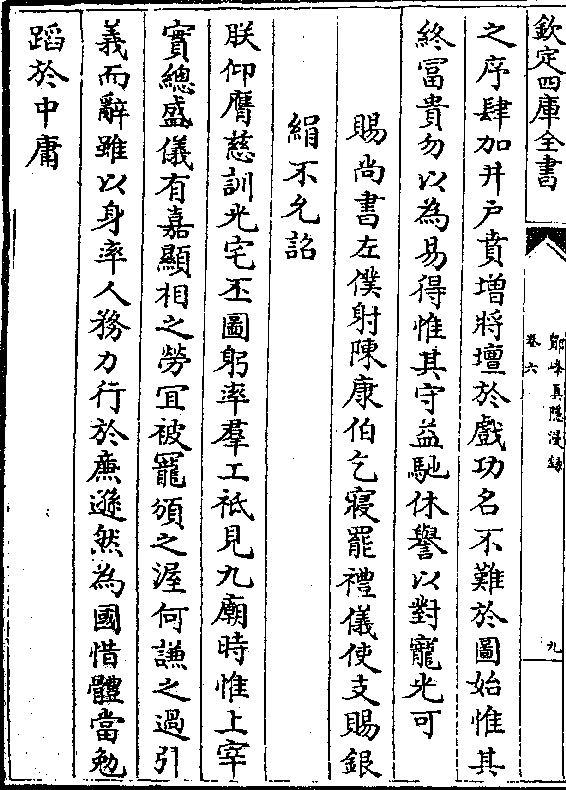 欽定四庫全書
鄮峰真隱漫録
卷六
九
之序肆加井戶賁增將壇於戲功名不難於圖始惟其
終富貴勿以為易得惟其守益馳休譽以對寵光可
賜尚書左僕射陳康伯乞寢罷禮儀使支賜銀
絹不允詔
朕仰膺慈訓光宅丕圖躬率羣工祗見九廟時惟上宰
實總盛儀有嘉顯相之勞宜被寵頒之渥何謙之過引
義而辭雖以身率人務力行於亷遜然為國惜體當勉
蹈於中庸